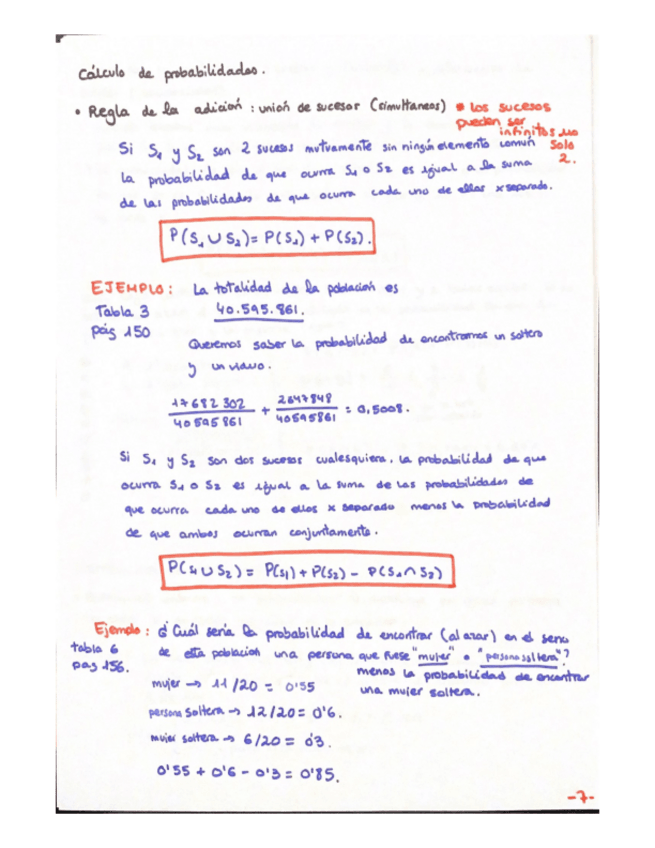 Cálculo de probabilidades.
• Regla de la adición : unión de sucesor (simultaneos) * los sucesos
pueden ser
infinitos no
solo
2.
Si S₁ y S₂ son 2 sucesos mutuamente sin ningún elemento común
la probabilidad de que ocurra S₁ o S₂ es igual a la suma
de las probabilidades de que ocurra cada uno de ellos x separado.
P(S₁ ∪ S₂) = P(S₁) + P(S₂).
EJEMPLO: La totalidad de la población es
Tabla 3 40.595.861.
pág 150
Queremos saber la probabilidad de encontrarnos un soltero
y un viudo.
17682302/40595861 + 2647848/40595861 = 0,5008.
Si S₁ y S₂ son dos sucesos cualesquiera, la probabilidad de que
ocurra S₁ o S₂ es igual a la suma de las probabilidades de
que ocurra cada uno de ellos x separado menos la probabilidad
de que ambos ocurran conjuntamente.
P(S₁ ∪ S₂) = P(S₁) + P(S₂) - P(S₁ ∩ S₂)
Ejemplo: ¿Cuál sería la probabilidad de encontrar (al azar) en el seno
tabla 6 de esta población una persona que fuese "mujer" o "persona soltera"?
pag 156. menos la probabilidad de encontrar
una mujer soltera.
mujer → 11/20 = 0'55
persona soltera → 12/20 = 0'6.
mujer soltera → 6/20 = 0'3.
0'55 + 0'6 - 0'3 = 0'85.
-7-